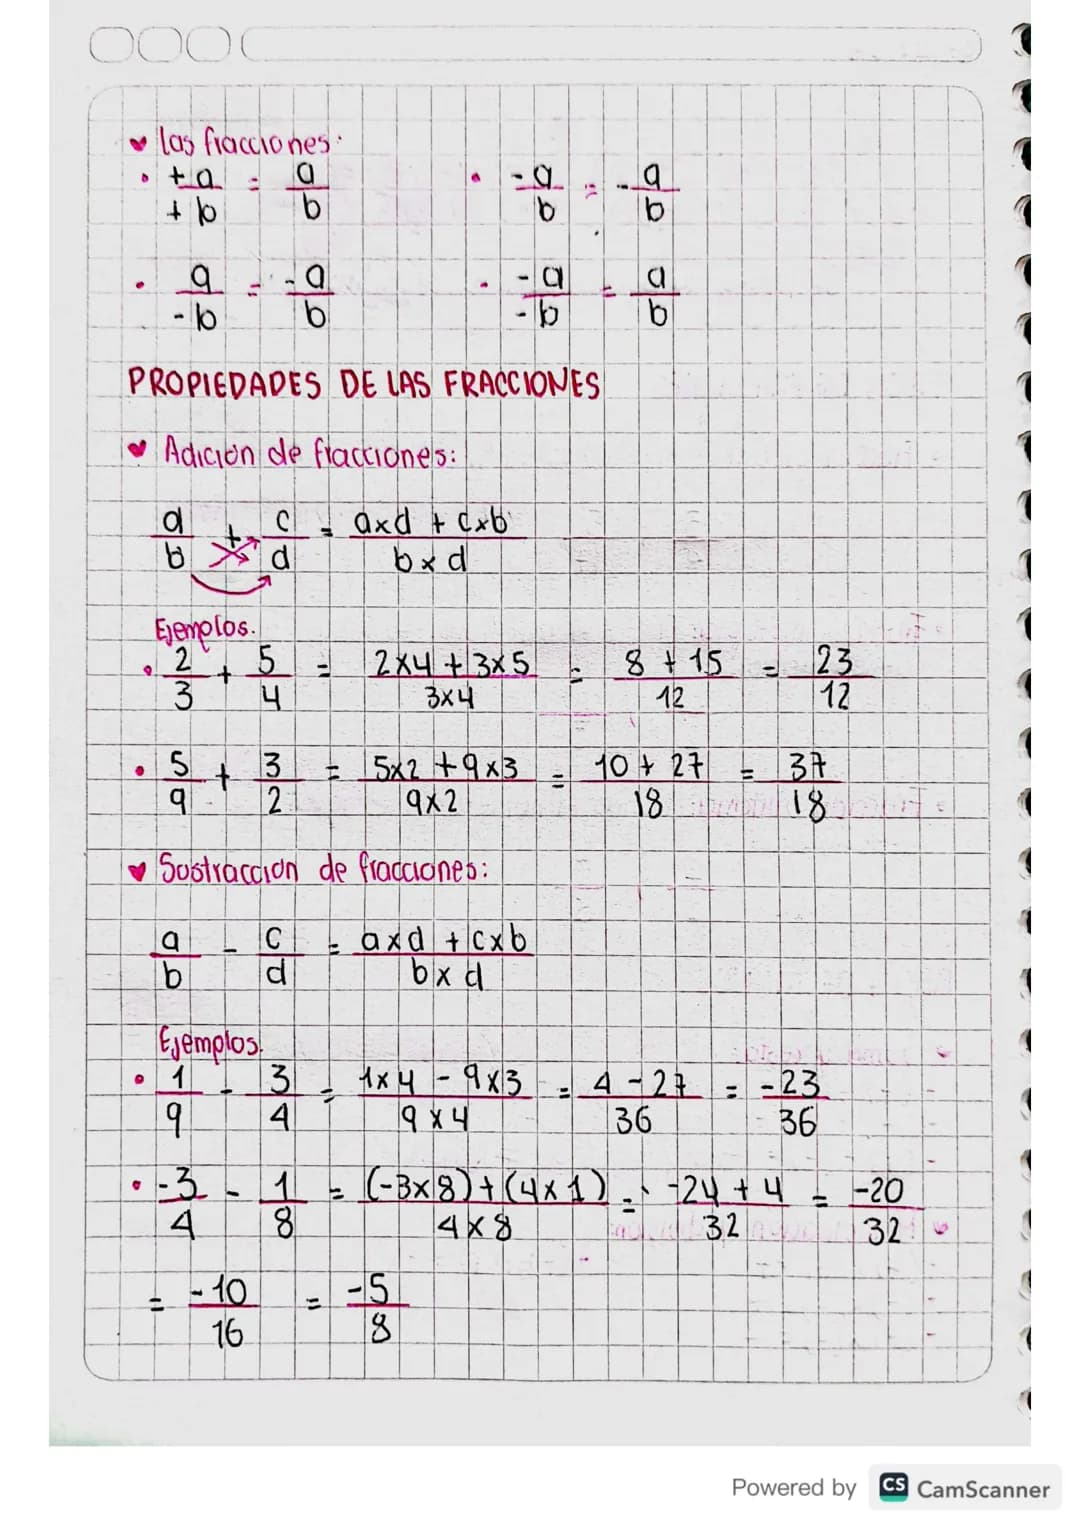 las fracciones:
+a/+b = a/b · -a/b = -a/b
a/-b = -a/b · -a/-b = a/b
PROPIEDADES DE LAS FRACCIONES
Adición de fracciones:
a/b + c/d = axd + cxb / bxd
Ejemplos.
2/3 + 5/4 = 2x4 + 3x5 / 3x4 = 8 + 15 / 12 = 23/12
5/9 + 3/2 = 5x2 + 9x3 / 9x2 = 10 + 27 / 18 = 37/18
Sustracción de fracciones:
a/b - c/d = axd + cxb / bxd
Ejemplos.
1/9 - 3/4 = 1x4 - 9x3 / 9x4 = 4 - 27 / 36 = -23/36
-3/4 - 1/8 = (-3x8) + (4x1) / 4x8 = -24 + 4 / 32 = -20/32
= -10/16 = -5/8
Powered by CS CamScanner